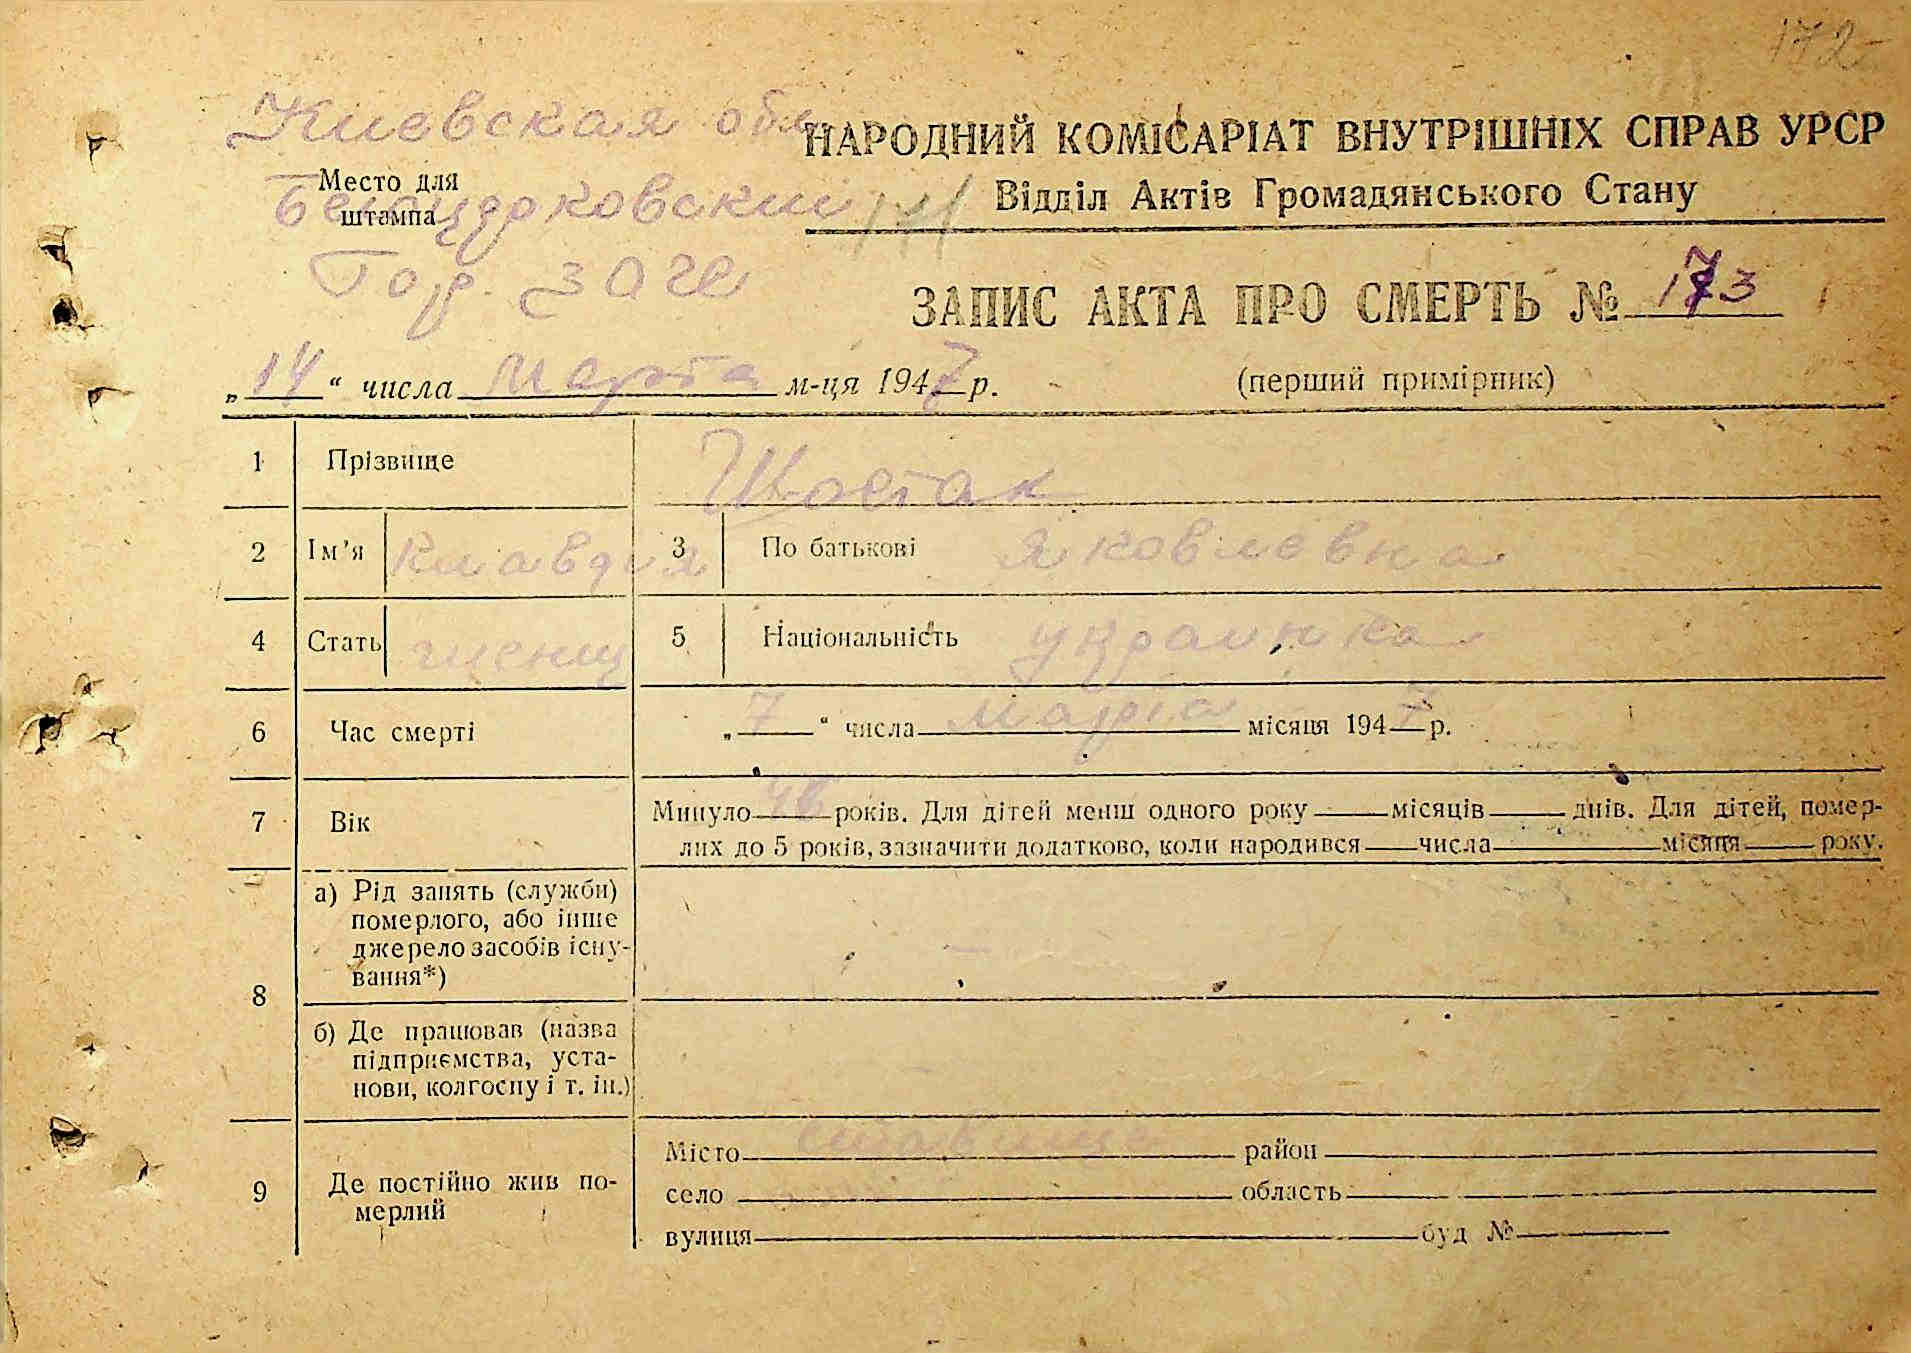 172
Киевская обл
НАРОДНИЙ КОМІСАРІАТ ВНУТРІШНІХ СПРАВ УРСР
Место для
штампа
Белоцерковский
171
Відділ Актів Громадянського Стану
Гор. загс
ЗАПИС АКТА ПРО СМЕРТЬ № 173
„14“ числа марта м-ця 1947 р.
(перший примірник)
1 Прізвище Шостак
2 Ім'я Клавдия 3 По батькові Яковлевна
4 Стать женщ 5 Національність украинка
6 Час смерті „7“ числа марта місяця 1947 р.
7 Вік Минуло років. Для дітей менш одного року місяців днів. Для дітей, помер-
лих до 5 років, зазначити додатково, коли народився числа місяця року.
8 а) Рід занять (служби)
померлого, або інше
джерело засобів існу-
вання*)
б) Де працював (назва
підприємства, уста-
нови, колгоспу і т. ін.)
9 Де постійно жив по-
мерлий
Місто Ставище район
село область
вулиця буд №